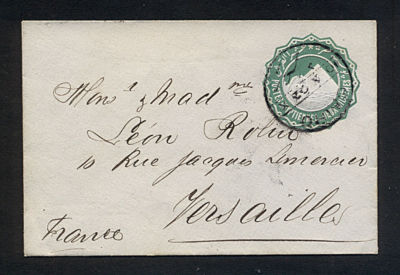 Mons.r & Mad.me
Léon Robin
10 Rue Jacques Lemercier
Versailles
France